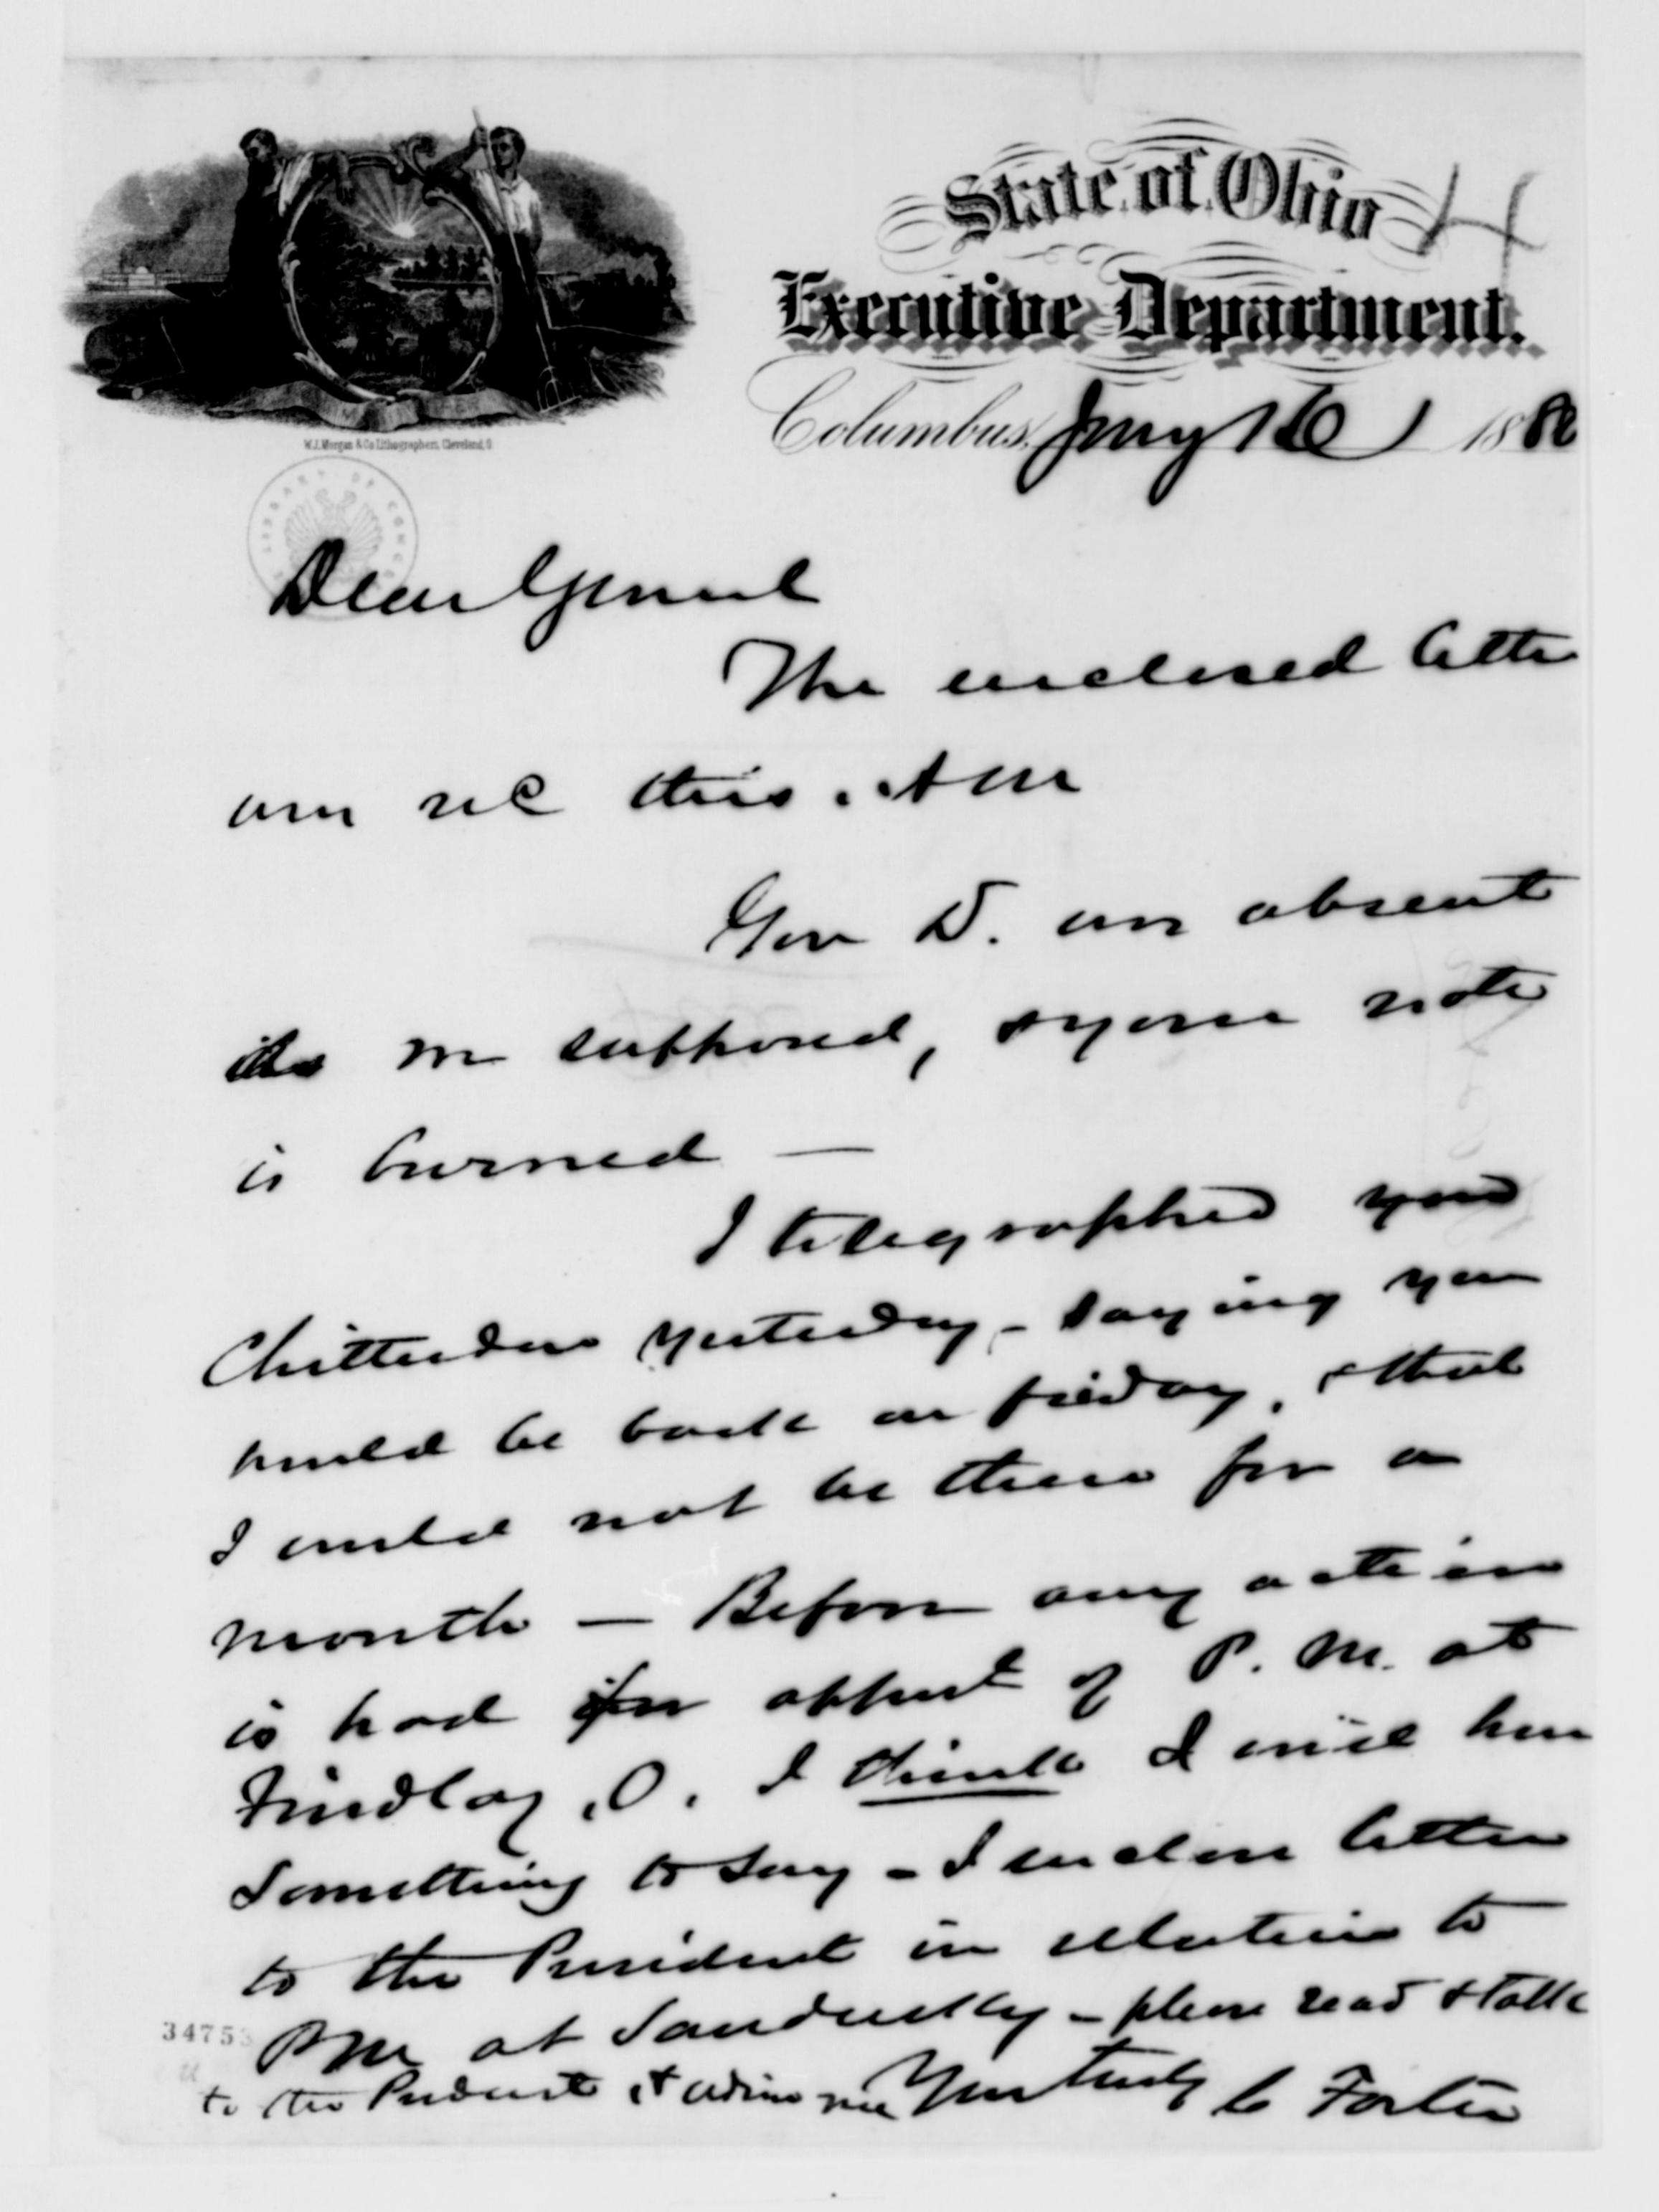 State of Ohio
4
Executive Department.
Columbus, Jany 16 1880
W.J. Morgan & Co Lithographers, Cleveland, O.
LIBRARY OF CONGRESS
Dear General
The enclosed letter
was rec this A M
Gov D. was absent
as we supposed, & your note
is burned —
I telegraphed
Chittenden yesterday - saying you
would be back on friday, & that
I would not be there for a
month — Before any action
is had for appmt of P. M. at
Findlay, O. I think I will have
something to say - I enclose letter
to the President in relation to
PM at Sandusky - please read & talk
34753
to the President & advise me Yours truly C Foster